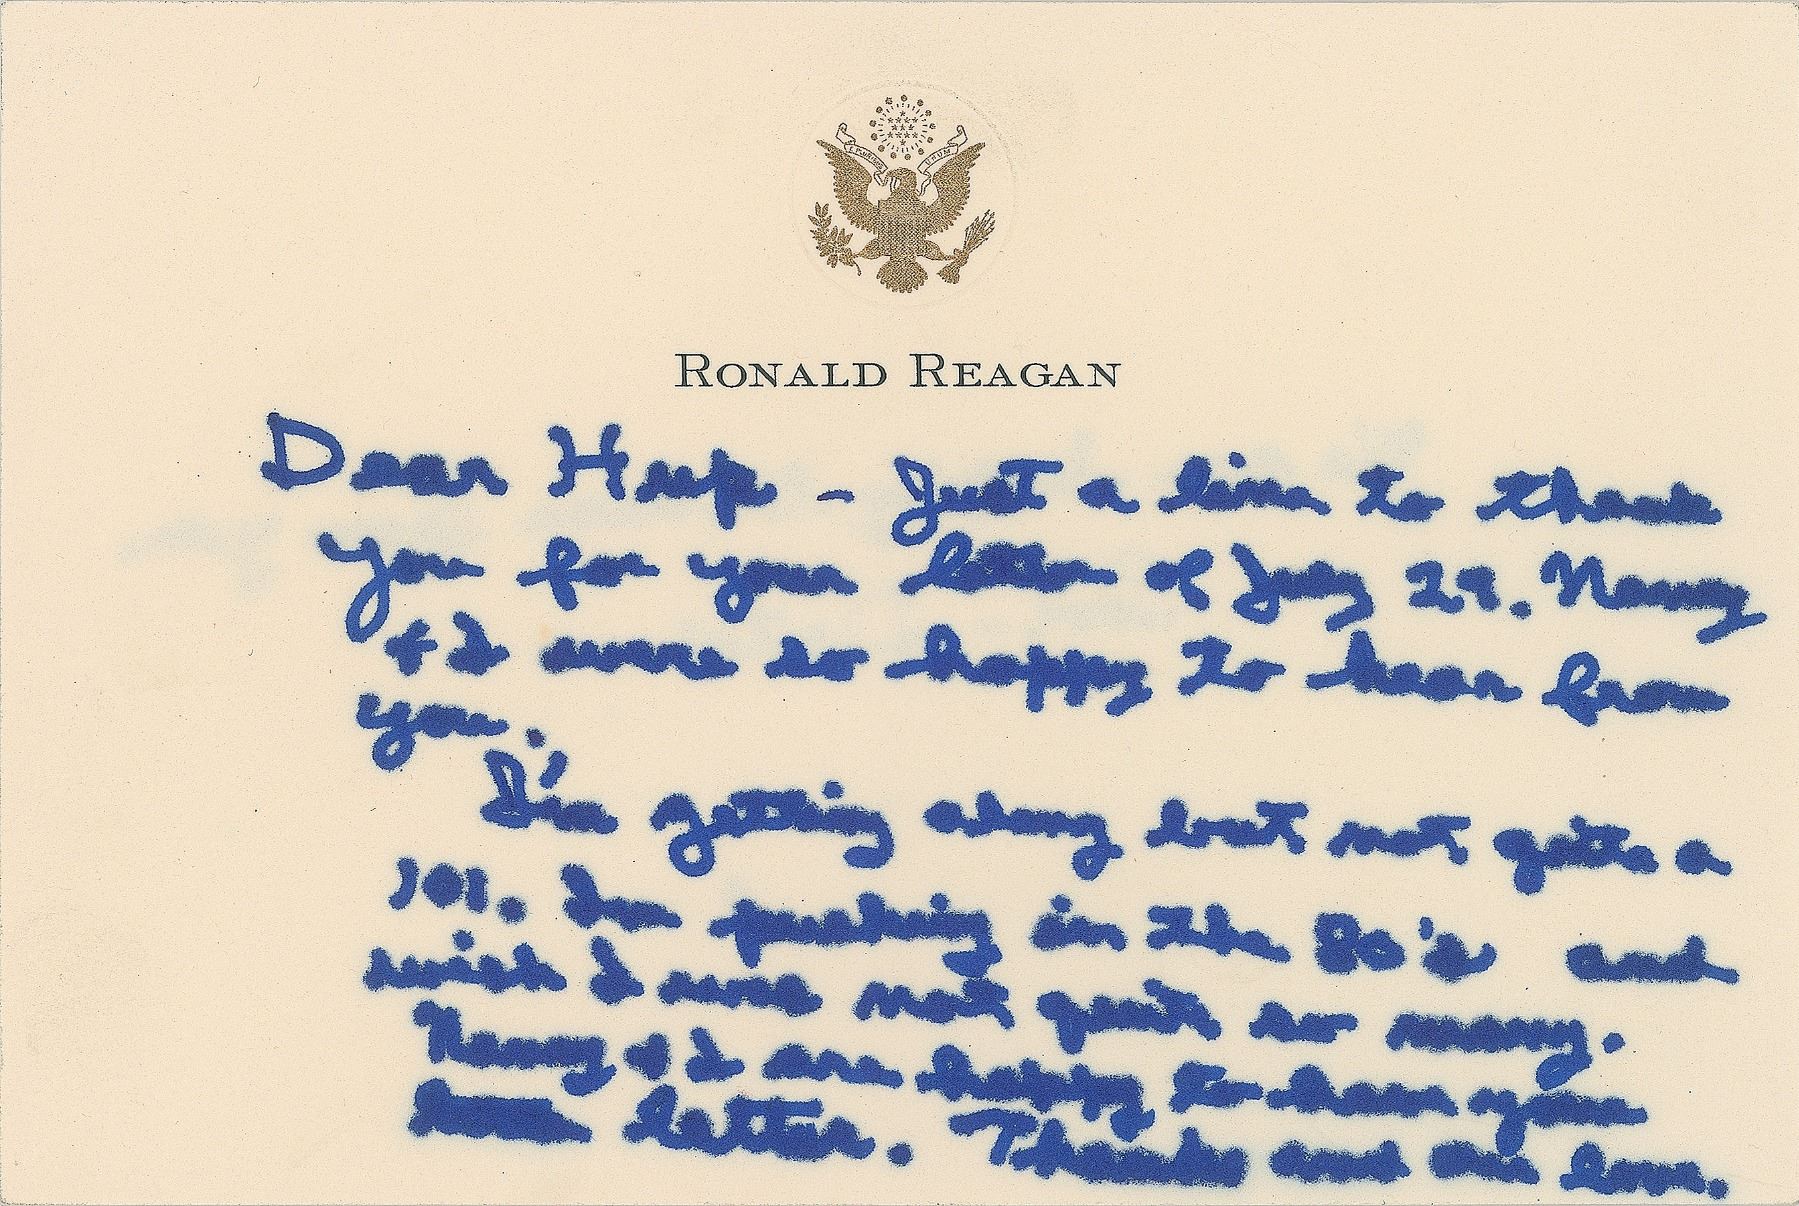 E PLURIBUS UNUM
RONALD REAGAN
Dear Hup – Just a line to thank
you for your letter of July 29. Nancy
& I were so happy to hear from
you.
I'm getting along but not quite a
101. I'm pushing in the 80's and
wish I was not quite so many.
Nancy & I are happy to have your
letter. Thanks and our love.